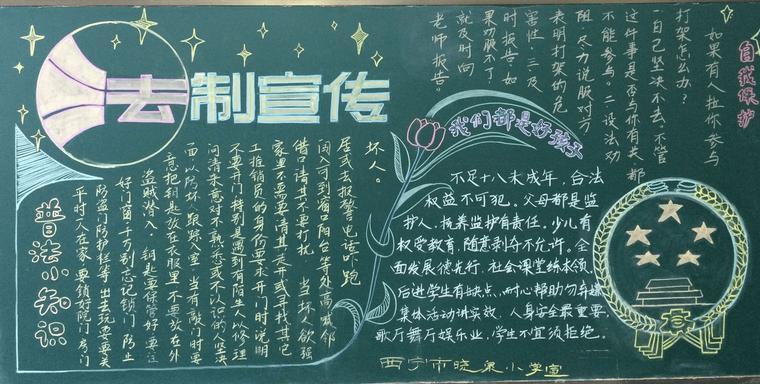 法制宣传
普法小知识
平时人在家要锁好院门、房门
防盗门防护栏等出去玩要要关
好门窗千万别忘记锁门防止
盗贼潜入。钥匙要保管好要注
意把钥匙放在衣服里不要放在外
面以防坏人跟踪入室。当有敲门时要
问清来意对不熟悉或不认识的人坚决
不要开门特别是遇到有陌生人以修理
工推销员的身份要求开门时说明
家里不需要请其走开或寻找其它
借口请其不要打扰。当坏人欲强
闯入可到窗口阳台等处高喊邻
居或去报警电话吓跑
坏人。
自我保护
如果有人拉你参与
打架怎么办？
一自己坚决不去，不管
这件事是否与你有关都
不能参与。二设法劝
阻，尽力说服对方
表明打架的危
害性。三及
时报告，如
果劝服不了
就及时向
老师报告。
我们都是好孩子
不足十八未成年，合法
权益不可犯。父母都是监
护人，抚养监护有责任。少儿有
权受教育，随意剥夺不允许。全
面发展德先行，社会课堂练本领。
后进学生有缺点，耐心帮助勿弃嫌
集体活动讲实效，人身安全最重要，
歌厅舞厅娱乐业，学生不宜须拒绝。
西宁市晓泉小学宣